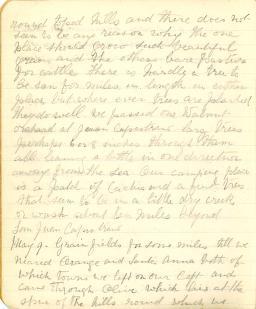 round typed hills and there does not
seem to be any reason why the one
place should grow such beautiful
grain and the others bare pasture
for cattle there is hardly a tree to
be seen for miles in length in either
place but where ever trees are planted
they do well we passed one Walnut
orchard at Juan Capistrano large trees
perhaps 6 or 8 inches through them
all leaning a little in one direction
away from the sea Our camping place
is a field of Cactus and a few trees
that seem to be in a little dry creek
or wash about six miles beyond
San Juan Capistrano
May 9. Grain fields for some miles till we
neared Orange and Santa Anna both of
which towns we left on our left and
came through Olive which lies at the
spur of the hills round which we